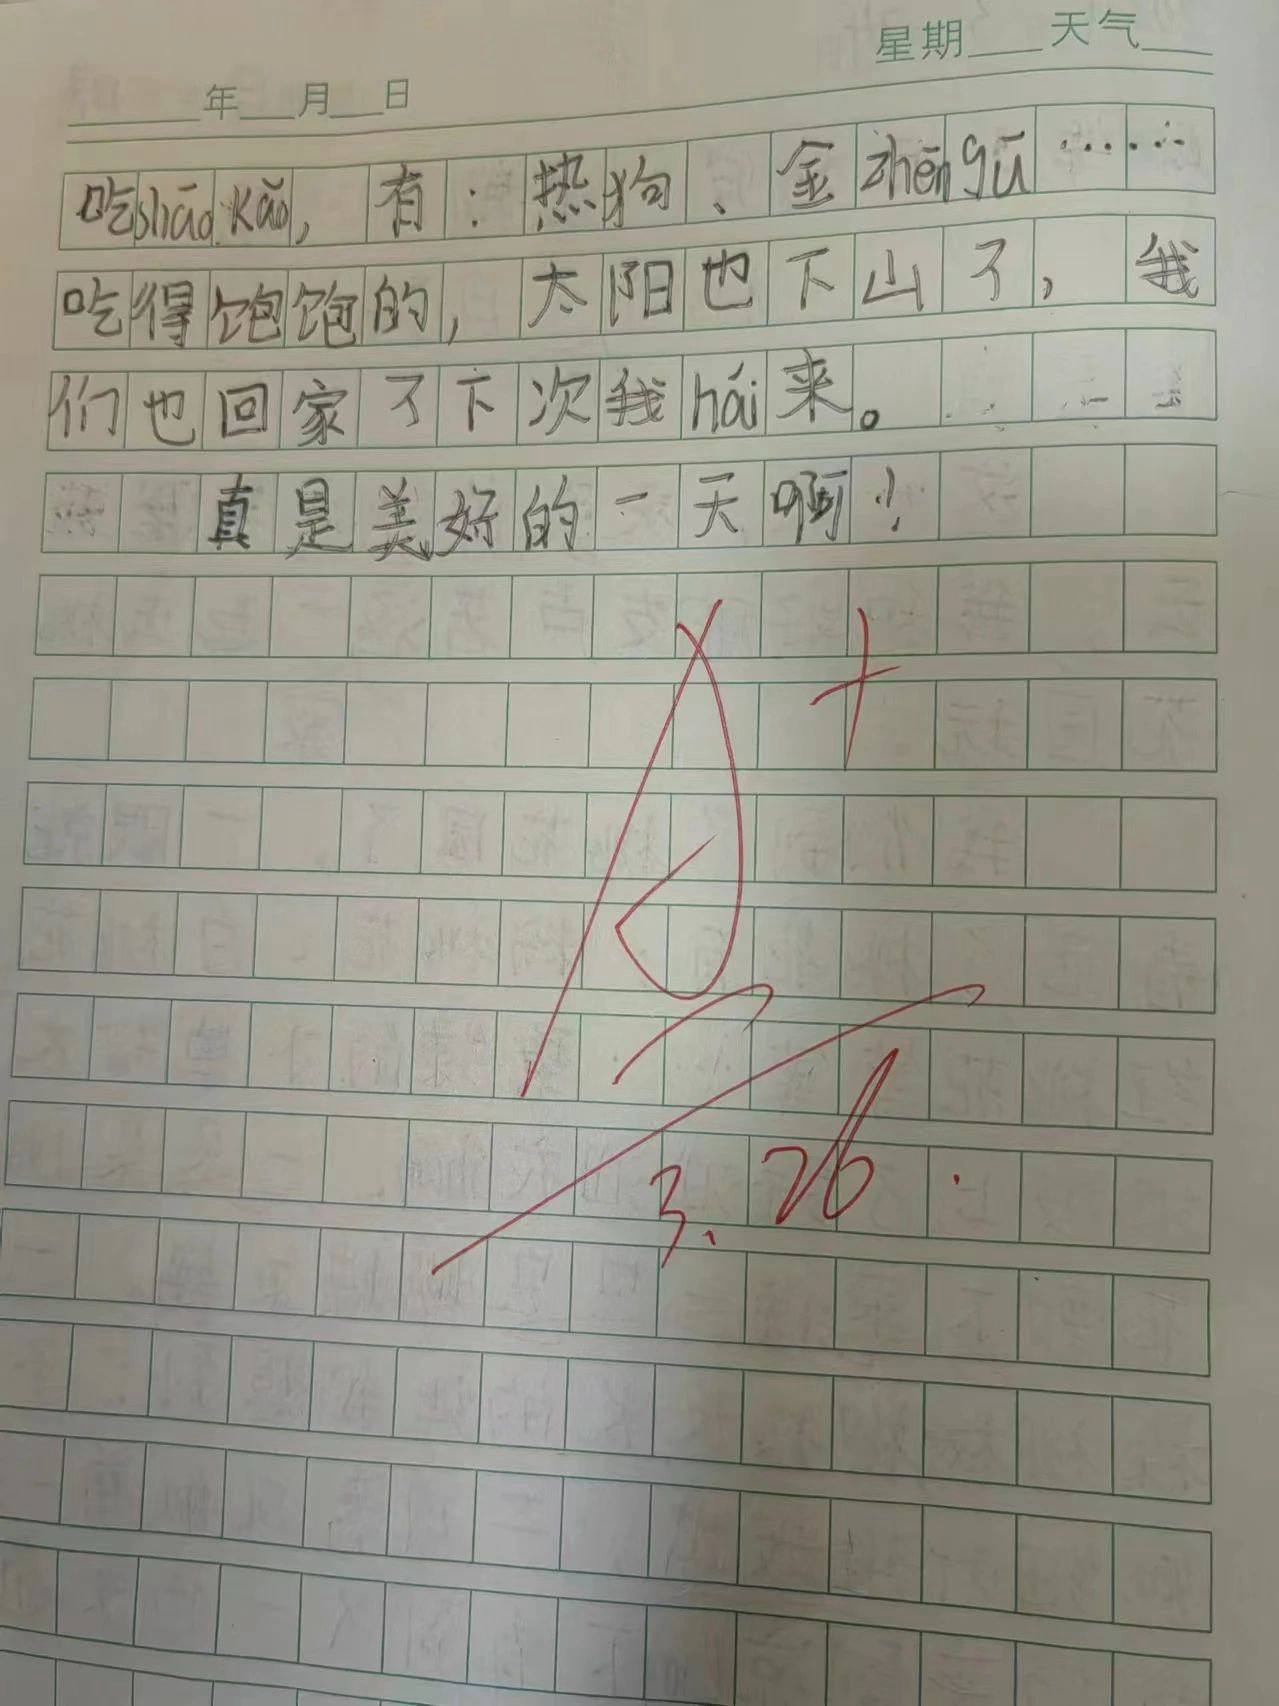 星期____天气____
____年____月____日
吃shāo kǎo，有：热狗、金zhēn gū……
吃得饱饱的，太阳也下山了，我
们也回家了下次我hái来。
真是美好的一天啊！
A+
3.26.